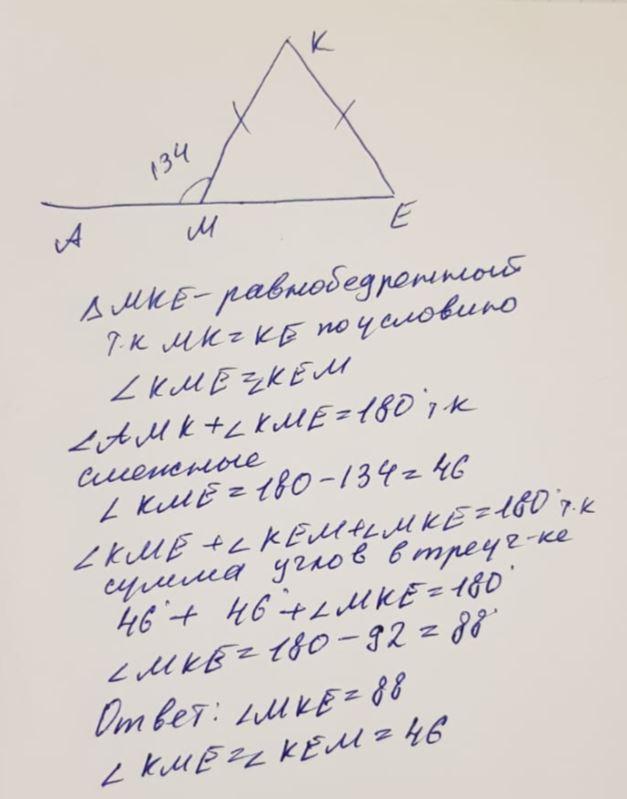 K
134
A
M
E
Δ MKE - равнобедренный
т.к MK = KE по условию
∠KME = ∠KEM
∠AMK + ∠KME = 180° т.к
смежные
∠KME = 180 - 134 = 46
∠KME + ∠KEM + ∠MKE = 180° т.к
сумма углов в треуг-ке
46° + 46° + ∠MKE = 180°
∠MKE = 180 - 92 = 88°
Ответ: ∠MKE = 88
∠KME = ∠KEM = 46